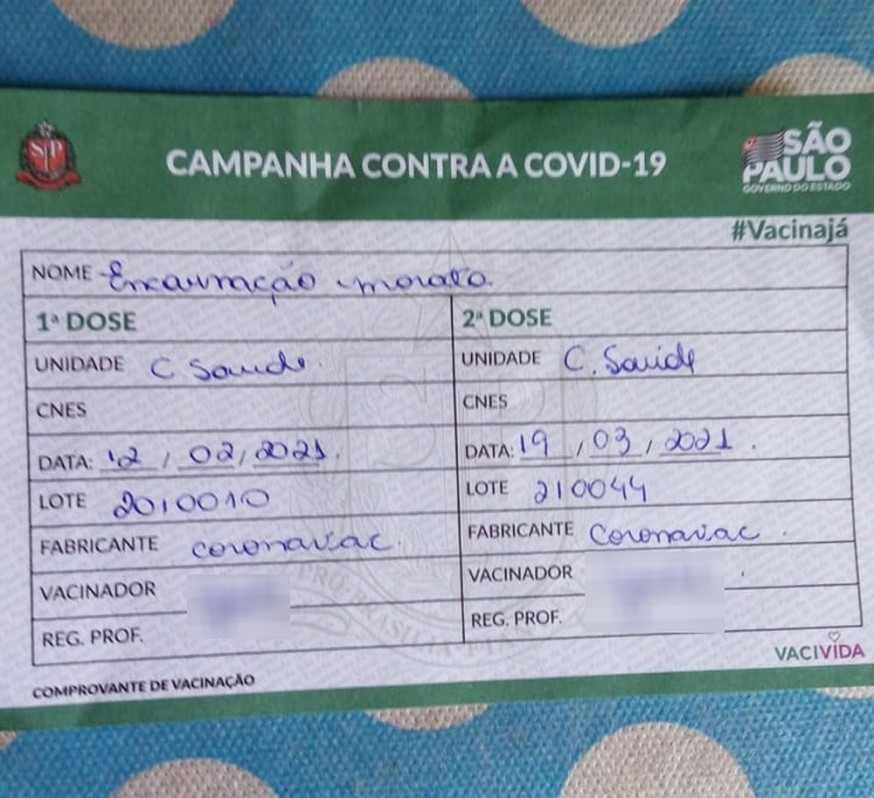 SP
CAMPANHA CONTRA A COVID-19
SÃO PAULO
GOVERNO DO ESTADO
#Vacinajá
NOME Encarnação morato
1ª DOSE
UNIDADE C Saude.
CNES
DATA: 12 / 02 / 2021.
LOTE 2010010
FABRICANTE coronavac.
VACINADOR
REG. PROF.
2ª DOSE
UNIDADE C. Saúde
CNES
DATA: 19 / 03 / 2021.
LOTE 210044
FABRICANTE Coronavac.
VACINADOR
REG. PROF.
VACIVIDA
COMPROVANTE DE VACINAÇÃO